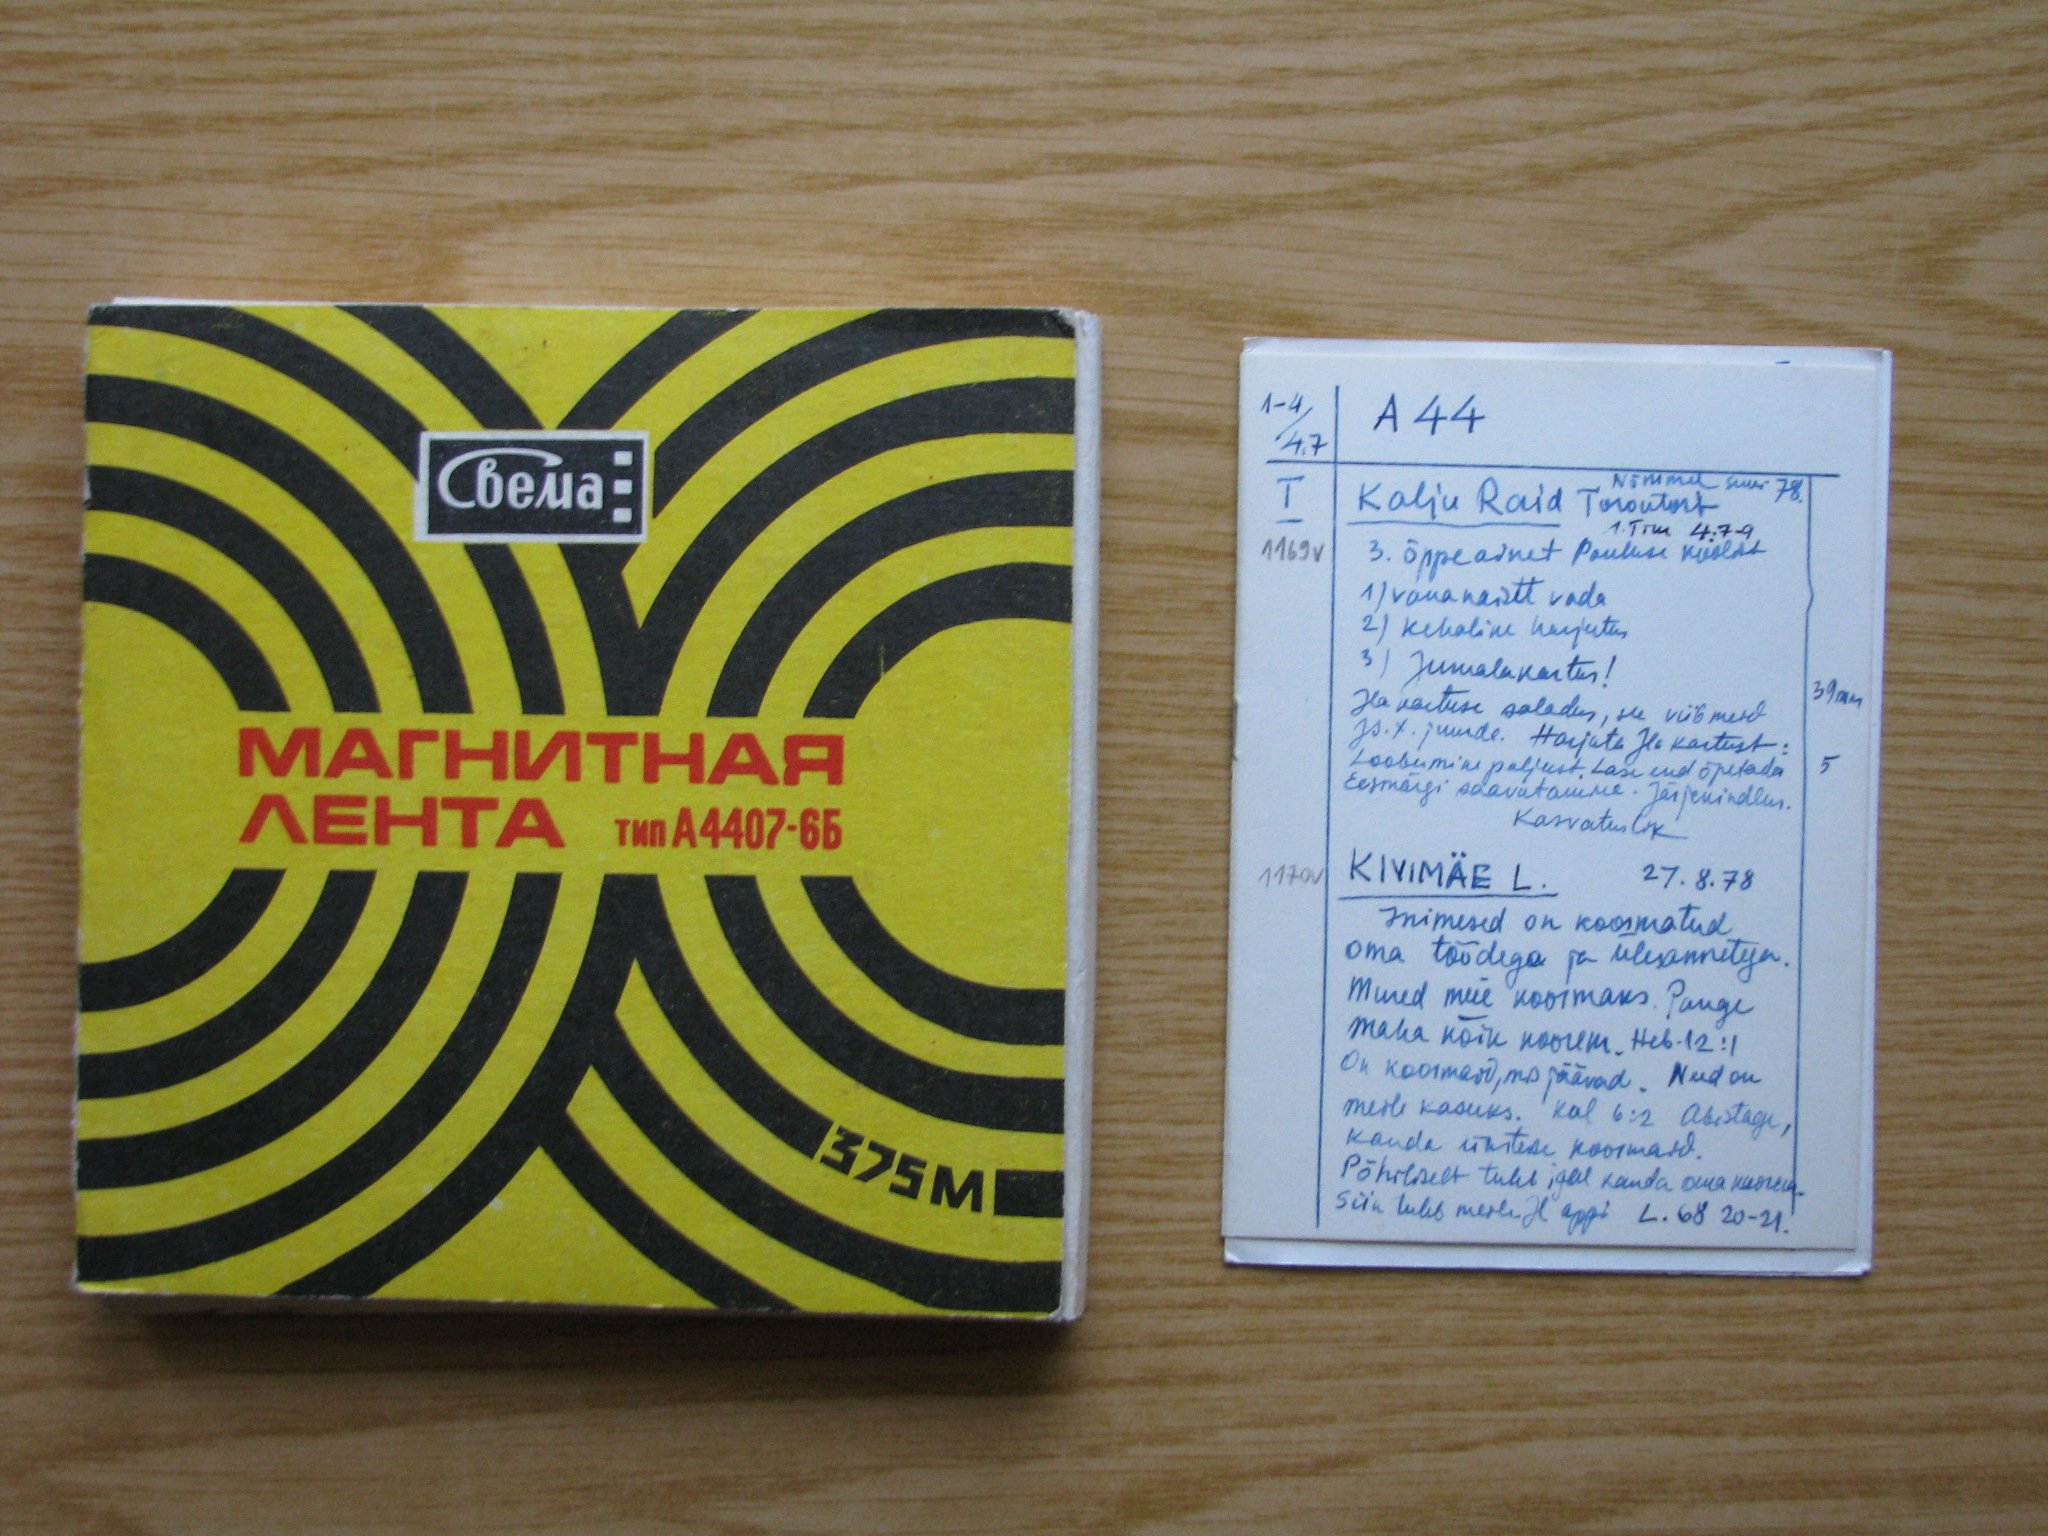 Свема
МАГНИТНАЯ
ЛЕНТА тип А4407-6Б
375М
1-4/4.7
A 44
I
Kalju Raid Torontost
Nõmmel 78.
1.Tim 4:7-9
1169v
3. õppeainet Pauluse koolist
1) vananaiste
2) kehaline harjutus
3) Jumalakartus!
Jla kartuse saladus, see viib meid
Js. X. juurde. Harjuta Jla kartust:
39 min
Loobumine paljust. Lase end õpetada
5
Eesmärgi saavutamine. Järjekindlus.
Kasvatuslik
1170v
KIVIMÄE L. 27.8.78
Inimesed on koormatud
oma töödega ja ülesannetega.
Mured meie koormaks. Pange
maha kõik koorem. Heb. 12:1
On koormaid, mis jäävad. Need on
meile kasuks. Kal 6:2 Abistage,
kanda üksteise koormaid.
Põhiliselt tuleb igal kanda oma koorem.
Siin tuleb meile Jl appi L. 68 20-21.